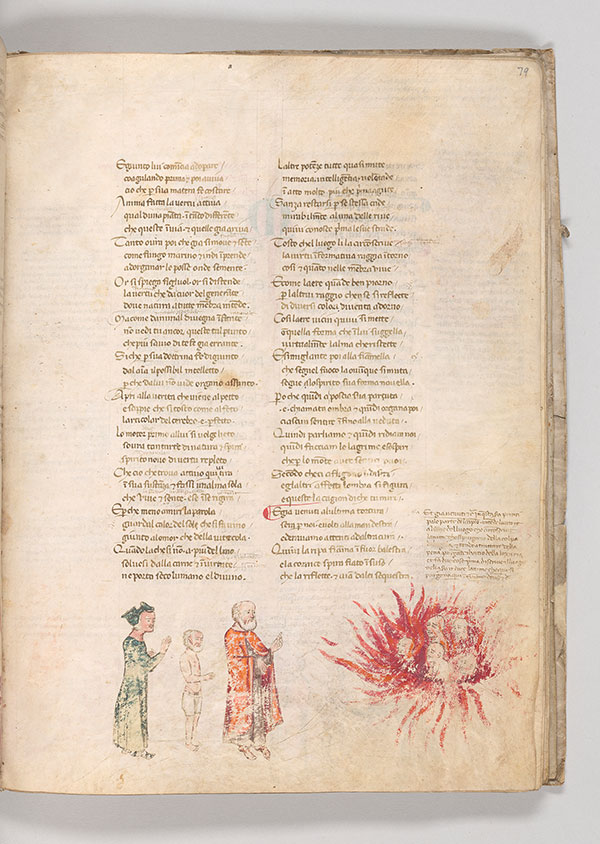 79
Egiunto lui comīcia adopare
coagulando prima ꝫ poi auiua
cio che ꝑ sua matera fe costare
Anima fatta la uertu attiua
qual duna pianta ītāto differēte
che queste īuia ꝫ quelle gia ariua
Tanto oura poi che gia si moue ꝫ sēte
come fungo marino ꝫ indi īprende
adorganar le posse onde semente
Or si spiega figliuol or si distende
la uertu che dal cor del generāte
doue natura a tutte mēbra ītēde
Ma come danimal diuegna īfante
non uedi tu ancor questo tal punto
che piu sauio di te fe gia errante
Si che ꝑ sua doctrina fe disgiunto
dal aīa il possibil intellecto
ꝑ che dalui nō uide organo assunto
Apri alla uerita che uiene il petto
e sappie che si tosto come al feto
larticolar del cerebro e ꝑfetto
Lo motor primo allui si uolge lieto
soura tantarte di natura ꝫ spira
spirito nouo di uertu repleto
Che cio che troua attiuo quiui tira
ī sua sustāçia ꝫ fassi unalma sola
che uiue ꝫ sente ꝫ se ī se rigira
E ꝑ che meno amiri la parola
guarda il calor del sole che si fa uino
giunto alomor che della uite cola
Quādo lachesis nō a piu del lino
soluesi dalla carne ꝫ ī uirtute
ne porta seco lumano el diuino
Laltre potēze tutte quasi mute
memoria intelligētia ꝫ uolontade
ī atto molto piu che prima agute
Sanza restarsi ꝑ se stessa cade
mirabilmēte aluna delle riue
quiui conosce prima le sue strade
Tosto che luogo li la circōscriue
la uirtu formatiua raggia ītorno
cosi ꝫ quāto nelle mēbra uiue
E come laere quāde ben piorno
ꝑ laltrui raggio che ī se si reflette
di diuersi colori diuenta adorno
Cosi laere uicin quiui si mette
ī quella forma che ī lui suggella
uirtualmēte lalma che ristette
E simigliante poi alla fiāmella
che segue il fuoco la ouunque si muta
segue alo spirito sua forma nouella
Po che quīdi a poscia sua paruta
e chiamata ombra ꝫ quīdi organa poi
ciascun sentire īfino alla ueduta
Quindi parliamo ꝫ quīdi ridiam noi
quīdi facciam le lagrime e sospiri
che ꝑ lo mōte auer sentiti puoi
Secōdo che ci affiggono i disiri
e gli altri affetti lombra si figura
e questo la cagion di che tu miri
E gia uenuti alultima tortura
sera ꝑ noi ꝫ uolto alla man destra
ꝫ erauamo attenti ad altra cura
Quiui la ripa fiāma ī fuor balestra
e la cornice spira fiato ī suso
che la riflette ꝫ uia dallei sequestra